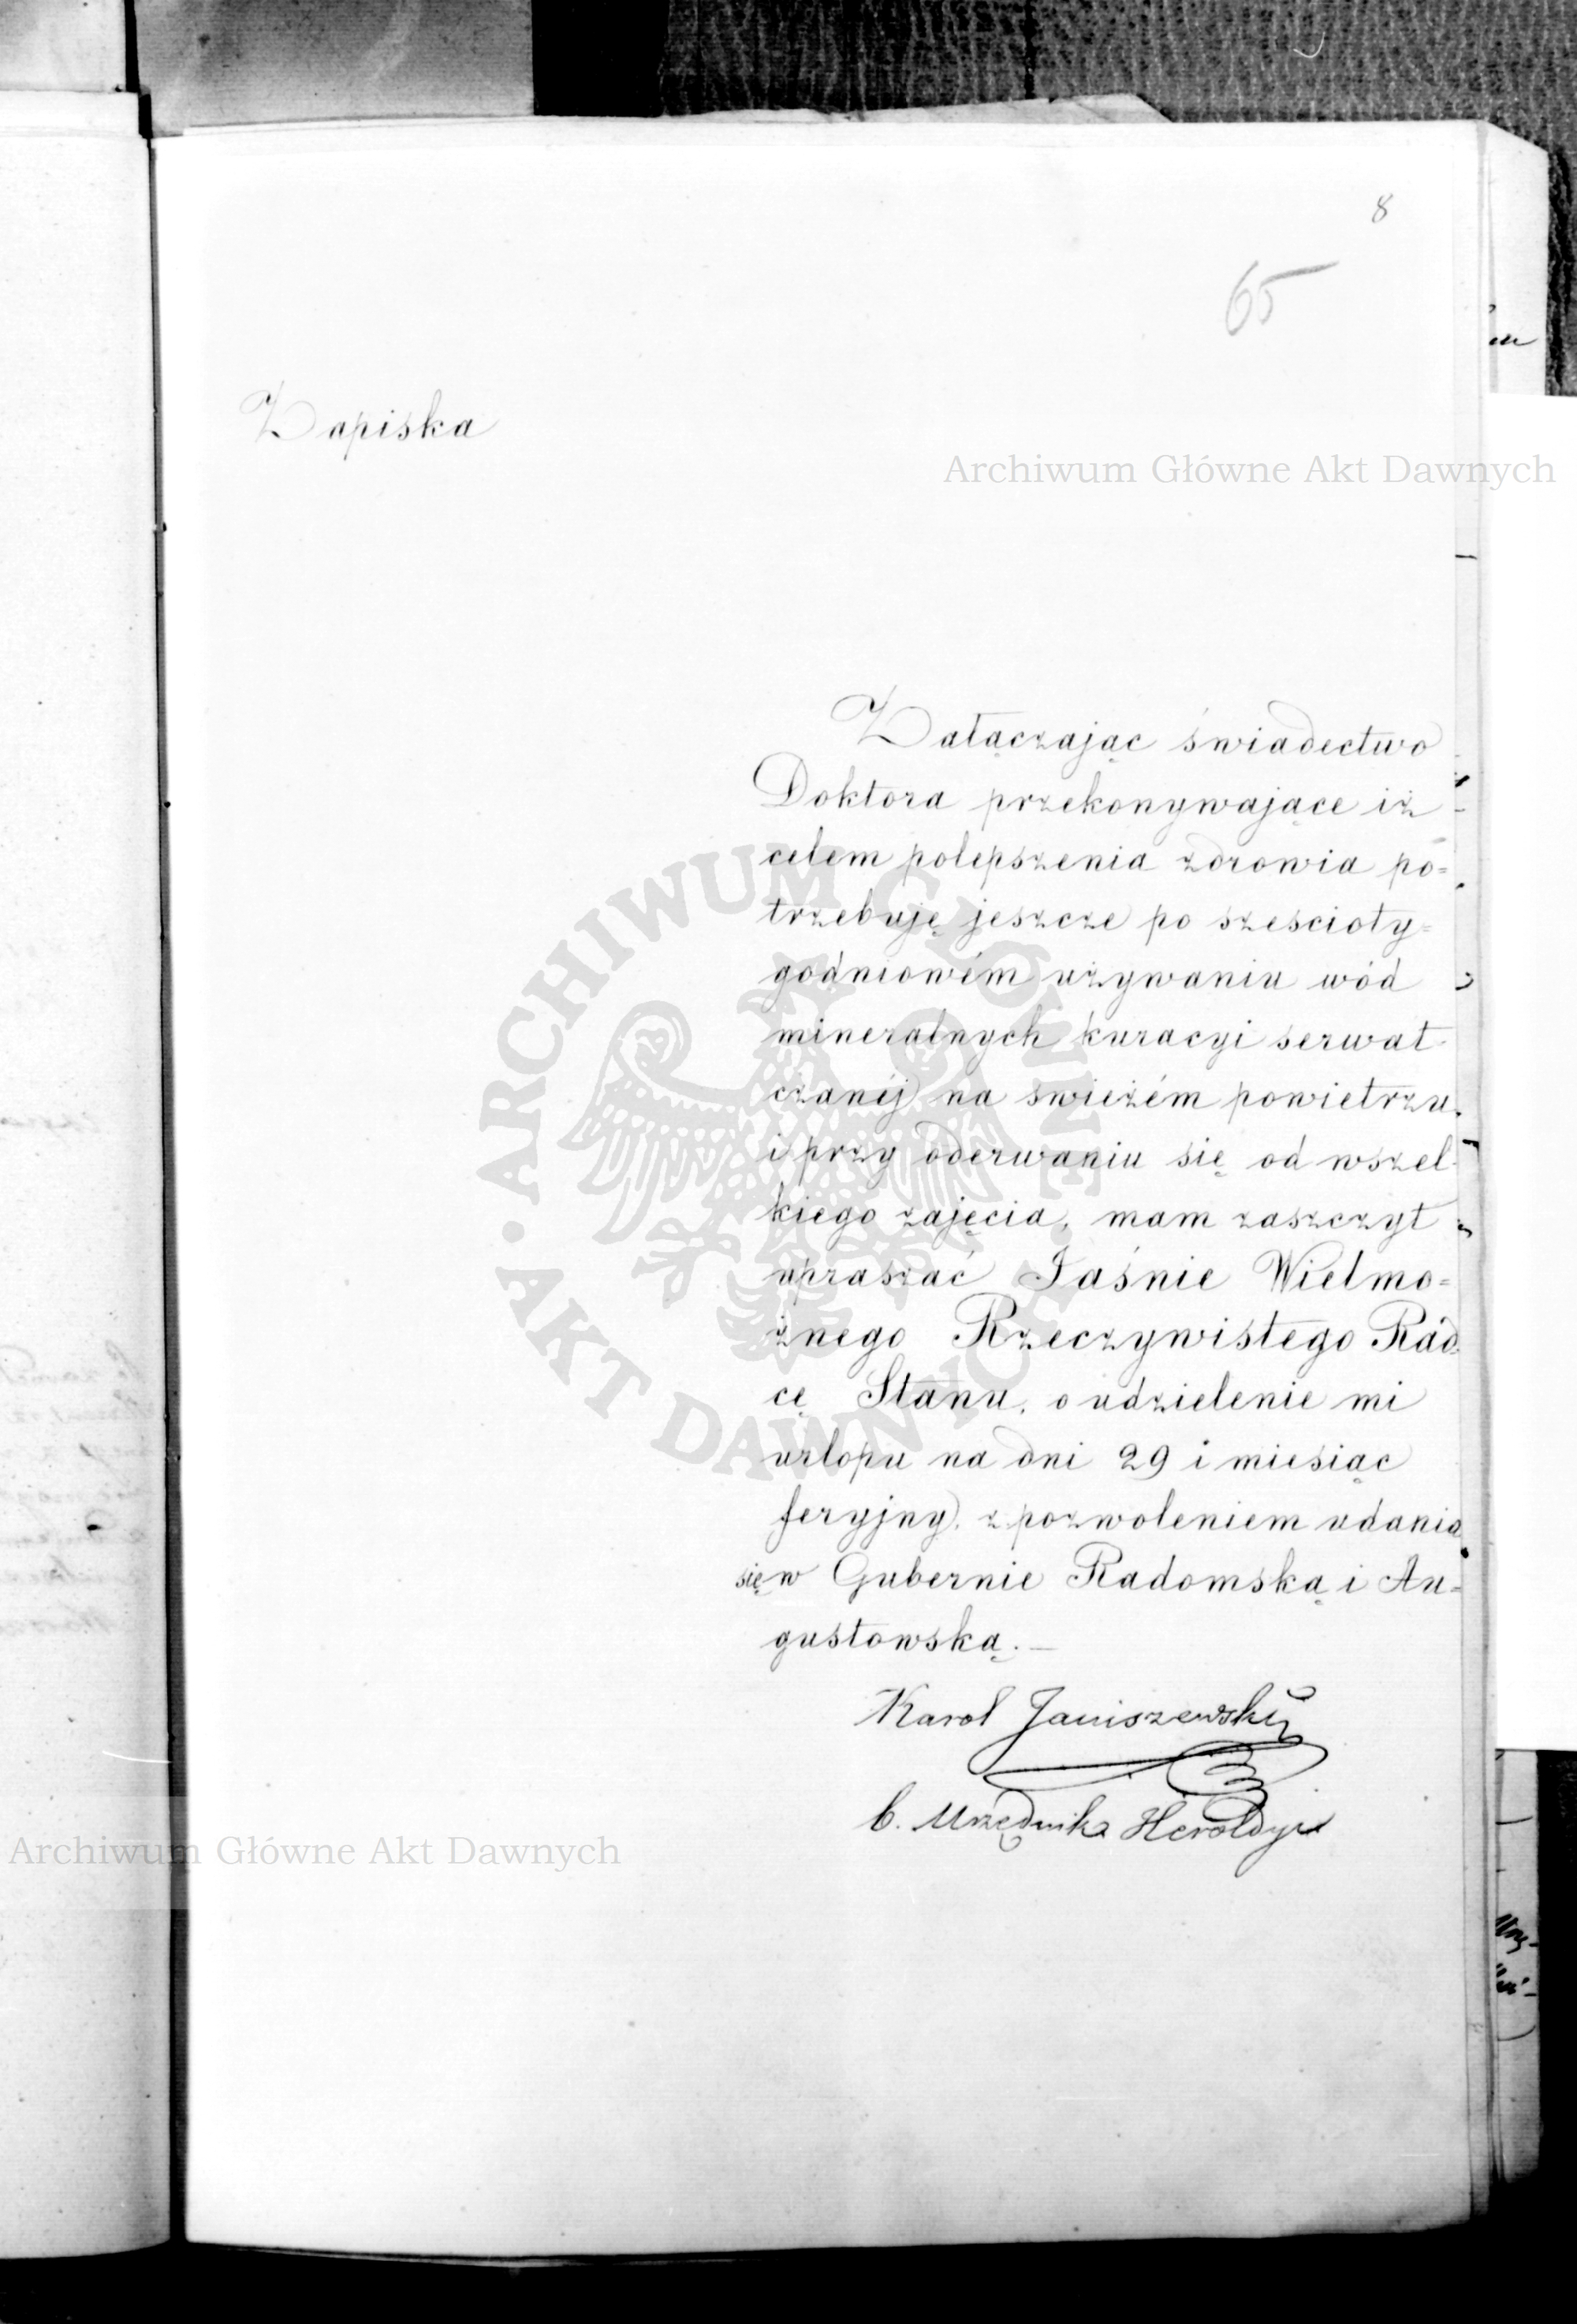 8
65
Zapiska
Archiwum Główne Akt Dawnych
Załączając świadectwo
Doktora przekonywające iż
celem polepszenia zdrowia po=
trzebuję jeszcze po sześcioty=
godniowém używaniu wód
mineralnych kuracyi serwat
czanéj na świeżém powietrzu
i przy oderwaniu się od wszel
kiego zajęcia, mam zaszczyt
upraszać Jaśnie Wielmo=
żnego Rzeczywistego Rad
cę Stanu, o udzielenie mi
urlopu na dni 29 i miesiąc
feryjny, z pozwoleniem udania
się w Gubernie Radomską i Au=
gustowską.—
Karol Janiszewski
b. Urzędnik Heroldyi
Archiwum Główne Akt Dawnych
ARCHIWUM GŁÓWNE • AKT DAWNYCH •